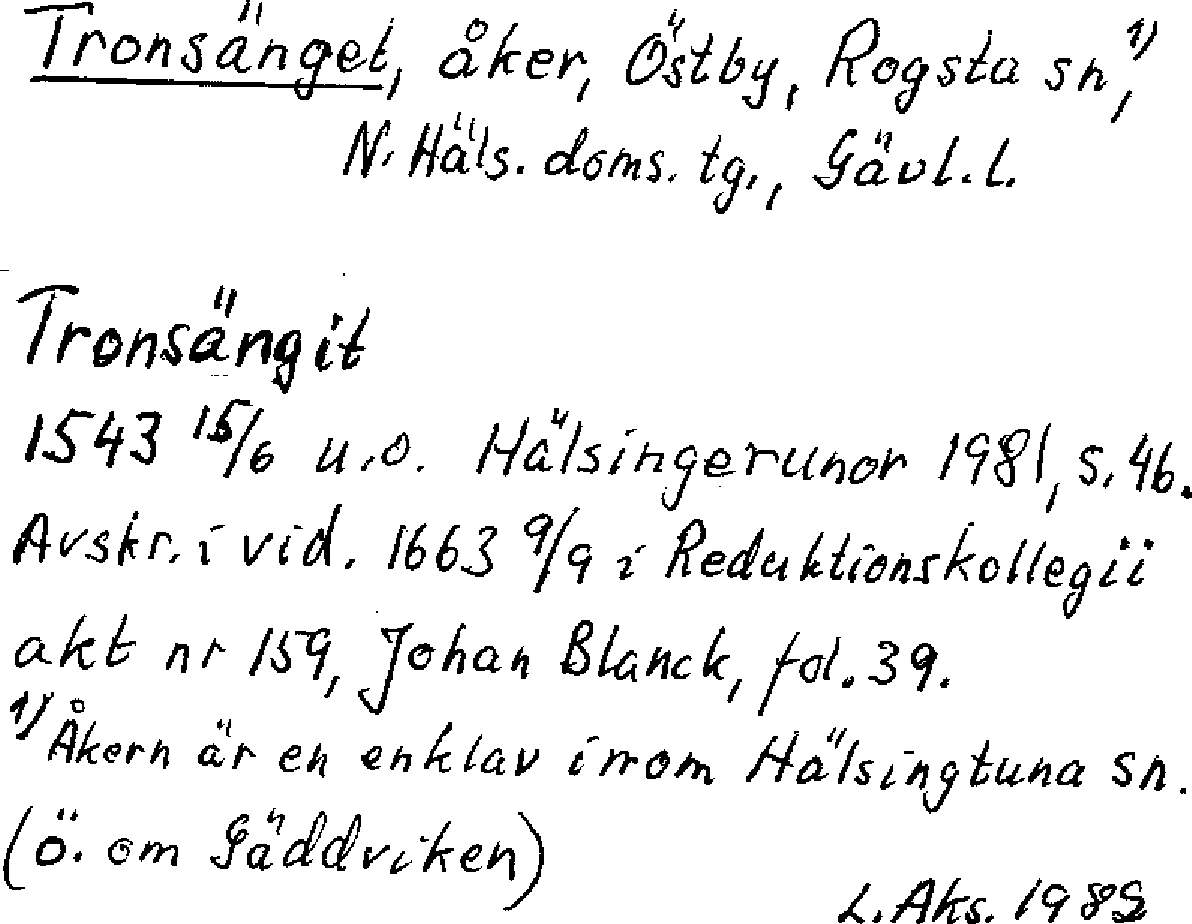 Tronsänget, åker, Östby, Rogsta sn,¹⁾
N. Häls. doms. tg., Gävl. l.
Tronsängit
1543 15/6 u.o. Hälsingerunor 1981, s. 46.
Avskr. i vid. 1663 9/9 i Reduktionskollegii
akt nr 159, Johan Blanck, fol. 39.
¹⁾ Åkern är en enklav inom Hälsingtuna sn.
(ö. om Gäddviken)
L. Aks. 1982